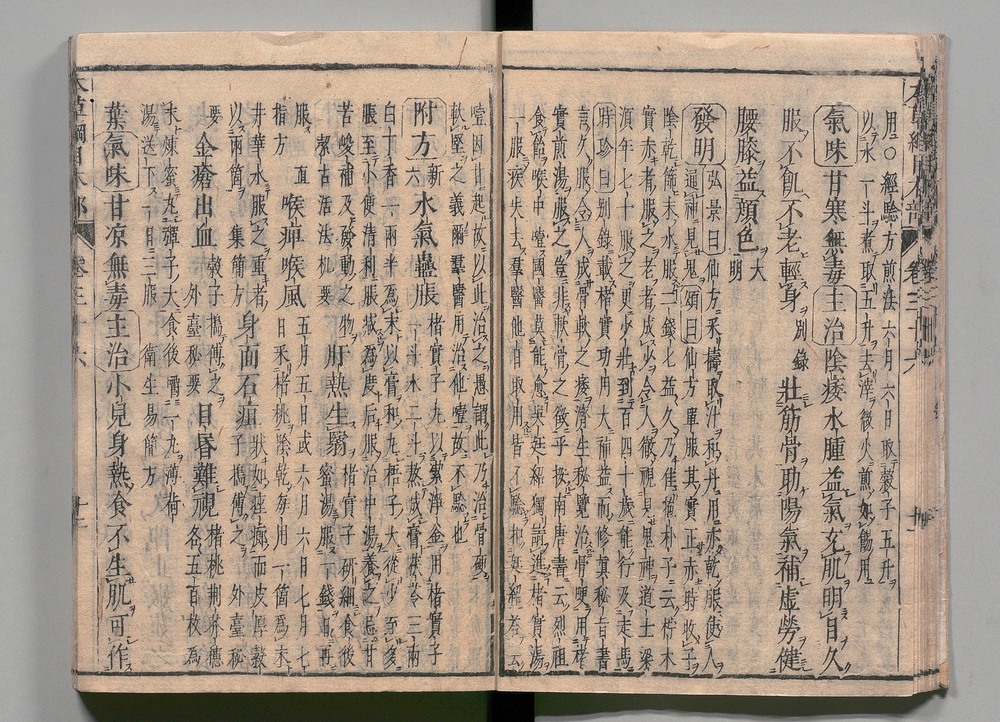 用○經驗方煎法六月六日取穀子五升
以水一斗煮取五升去滓微火煎如餳用
氣味甘寒無毒主治陰痿水腫益氣充肌明目久
服不飢不老輕身別錄壯筋骨助陽氣補虛勞健
腰膝益顏色大明
發明弘景曰仙方采擣取汁和丹用亦乾服使人
通神見鬼頌曰仙方單服其實正赤時收子
陰乾篩末水服二錢匕益久乃佳抱朴子云柠木
實赤者服之老者成少令人徹視見鬼道士梁
須年七十服之更少壯到百四十歲能行及走馬
時珍曰別錄載楮實功用大補益而修眞秘旨書
言久服令人成骨軟之痿濟生秘覽治骨哽用楮
實煎湯服之豈非軟骨之徵乎按南唐書云烈祖
食飴喉中噎國醫莫能愈吳廷紹獨請進楮實湯
一服疾失去羣醫他日取用皆不驗扣廷紹答云
噎因甘起故以此治之愚謂此乃治骨硬
軟堅之義爾羣醫用治他噎故不驗也
附方新六水氣蠱脹楮實子九以絜淨釜用楮實子
白丁香一兩半爲末以膏和丸梧子大從少至多
脹至小便清利脹減爲度后服治中湯養之忌甘
苦峻補及發動之物
潔古活法機要肝熱生翳楮實子研細食後
蜜湯服一錢日再
服直指方喉痺喉風五月五日或六月六日七月七
日采楮桃陰乾每用一箇爲末
井華水服之重者
以兩箇集簡方身面石疽狀如痤癤而皮厚穀
子擣傅之外臺秘
要金瘡出血穀子擣傅之
外臺秘要目昏難視楮桃荆芥穗
各五百枚爲
末煉蜜丸彈子大食後嚼一丸薄荷
湯送下一日三服衛生易簡方
葉氣味甘涼無毒主治小兒身熱食不生肌可作